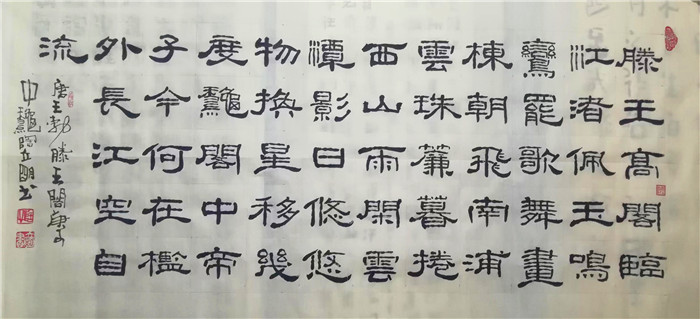 滕王高閣臨
江渚佩玉鳴
鸞罷歌舞畫
棟朝飛南浦
雲珠簾暮捲
西山雨閑雲
潭影日悠悠
物換星移幾
度龝閣中帝
子今何在檻
外長江空自
流
唐王勃滕王閣庚子
中龝立明书